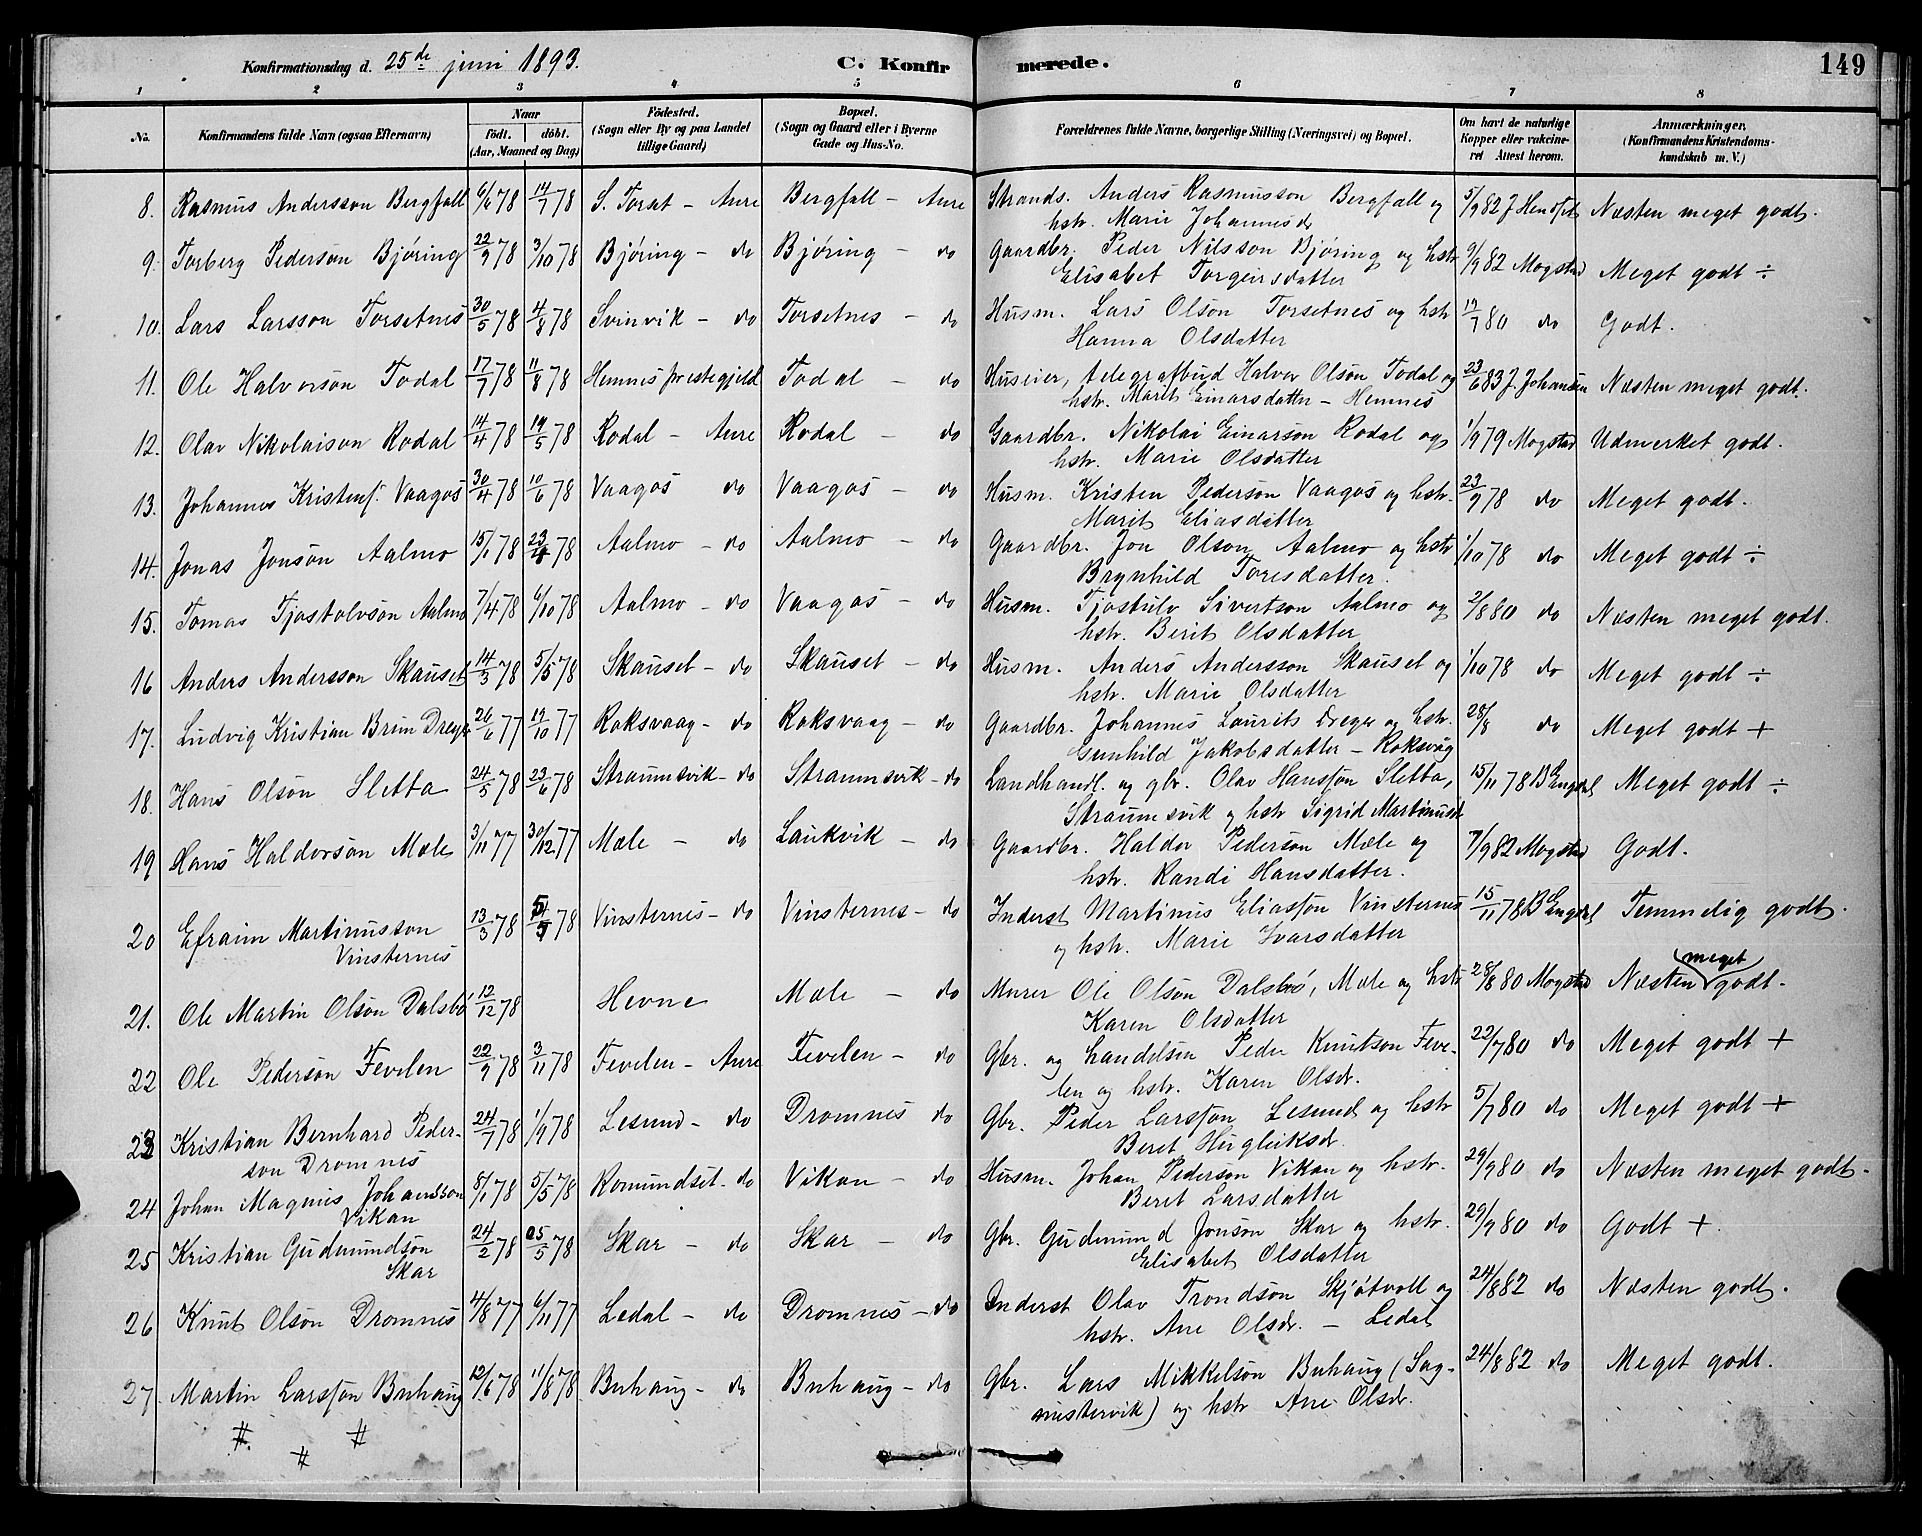 Konfirmationsdag d. 25de juni 1893. C. Konfirmerede. 149
1 2 3 4 5 6 7 8
No. Konfirmandens fulde Navn (ogsaa Efternavn) Naar födt. döbt. (Aar, Maaned og Dag) Födested. (Sogn eller By og paa Landet tillige Gaard) Bopæl. (Sogn og Gaard eller i Byerne Gade og Hus-No. Forældrenes fulde Navne, borgerlige Stilling (Næringsvei) og Bopæl. Om havt de naturlige Kopper eller vakcineret Attest herom. Anmærkninger. (Konfirmandens Kristendomskundskab m. V.)
8. Rasmus Andersson Bergfall 6/6 78 14/7 78 S. Torset - Aure Bergfall - Aure Strands. Anders Rasmusson Bergfall og 5/9 82 Næsten meget godt.
hstr. Marie Johannesdr
9. Torberg Pederson Björing 22/9 78 3/10 78 Björing - do Björing - do Gaardbr. Peder Nilsson Björing og hstr 9/9 82 Mogstad Meget godt ÷
Elisabet Torgeirsdatter
10. Lars Larsson Torsetnes 30/5 78 4/8 78 Svinvik - do Torsetnes - do Husm. Lars Olson Torsetnes og hstr 17/7 80 do Godt.
Hanna Olsdatter
11. Ole Halvorson Todal 17/7 78 11/8 78 Hemnes prestegjeld Todal - do Huseier, telegrafbud Halvor Olson Todal og 23/6 83 J. Johansen Næsten meget godt.
hstr. Marit Einarsdatter - Hemnes
12. Olav Nikolaison Rodal 14/4 78 19/5 78 Rodal - Aure Rodal - do Gaardbr. Nikolai Einarson Rodal og 1/9 79 Mogstad Udmerket godt.
hstr. Marie Olsdatter
13. Johannes Kristens. Vaagos 30/4 78 10/6 78 Vaagos do Vaagos - do Husm. Kristen Pederson Vaagos og hstr. 23/9 78 do Meget godt.
Marit Eliasdatter
14. Jonas Jonson Aalmo 15/1 78 23/4 78 Aalmo - do Aalmo - do Gaardbr. Jon Olson Aalmo og hstr 1/10 78 do Meget godt ÷
Brynhild Toresdatter.
15. Tomas Tjostolvson Aalmo 7/4 78 6/10 78 Aalmo - do Vaagos - do Husm. Tjostulv Sivertson Aalmo og 2/8 80 do Næsten meget godt.
hstr. Berit Olsdatter
16 Anders Andersson Skauset 14/3 78 5/5 78 Skauset - do Skauset - do Husm. Anders Andersson Skauset og 1/10 78 do Meget godt ÷
hstr. Marie Olsdatter
17. Ludvig Kristian Brun Dreyer 26/6 77 19/10 77 Roksvaag - do Roksvaag - do Gaardbr. Johannes Laurits Dreyer og hstr. 28/8 do Meget godt +
Gunhild Jakobsdatter - Roksvåg
18. Hans Olson Sletta 24/5 78 23/6 78 Straumsvik - do Straumsvik - do Landhandl. og gbr. Olav Hansson Sletta, 15/11 78 B Engdal Meget godt ÷
Straumsvik og hstr Sigrid Martinusdr
19 Hans Haldorson Mæle 3/11 77 30/12 77 Mæle - do Laukvik - do Gaardbr. Haldor Pederson Mæle og 7/9 82 Mogstad Godt.
hstr. Randi Hansdatter.
20 Efraim Martinusson 13/3 78 5/5 78 Vinsternes - do Vinsternes - do Inderst Martinus Eliasson Vinsternes 15/11 78 B Engdal Temmelig godt.
Vinsternes og hstr. Marie Ivarsdatter
21. Ole Martin Olson Dalsbö 12/12 78 Hevne Mæle - do Murer Ole Olson Dalsbö, Mæle og hstr 28/8 80 Mogstad Næsten meget godt.
Karen Olsdatter
22 Ole Pederson Fevelen 22/9 78 3/11 78 Fevelen - Aure Fevelen - do Gbr. og handelsm Peder Knutson Feve- 22/7 80 do Meget godt +
len og hstr. Karen Olsdr.
23 Kristian Bernhard Peder- 24/7 78 1/9 78 Lesund - do Dromnes do Gbr. Peder Larsson Lesund og hstr 5/7 80 do Meget godt +
son Dromnes Beret Hugleiksdr.
24 Johan Magnus Johansson 8/1 78 5/5 78 Romundset - do Vikan - do Husm. Johan Pederson Vikan og hstr. 29/9 80 do Næsten meget godt.
Vikan Beret Larsdatter
25 Kristian Gudmundson 24/2 78 25/5 78 Skar - do Skar - do Gbr. Gudmund Jonson Skar og hstr. 29/9 80 do Godt +
Skar Elisabet Olsdatter
26 Knut Olson Dromnes 4/8 77 6/11 77 Ledal - do Dromnes - do Inderst Olav Trondson Skjötvoll og 24/8 82 do Næsten godt.
hstr. Ane Olsdr. - Ledal
27. Martin Larsson Buhaug 12/6 78 11/8 78 Buhaug - do Buhaug - do Gbr. Lars Mikkelson Buhaug (Sag- 24/8 82 do Meget godt.
mistervik) og hstr Ane Olsdr.
# # #